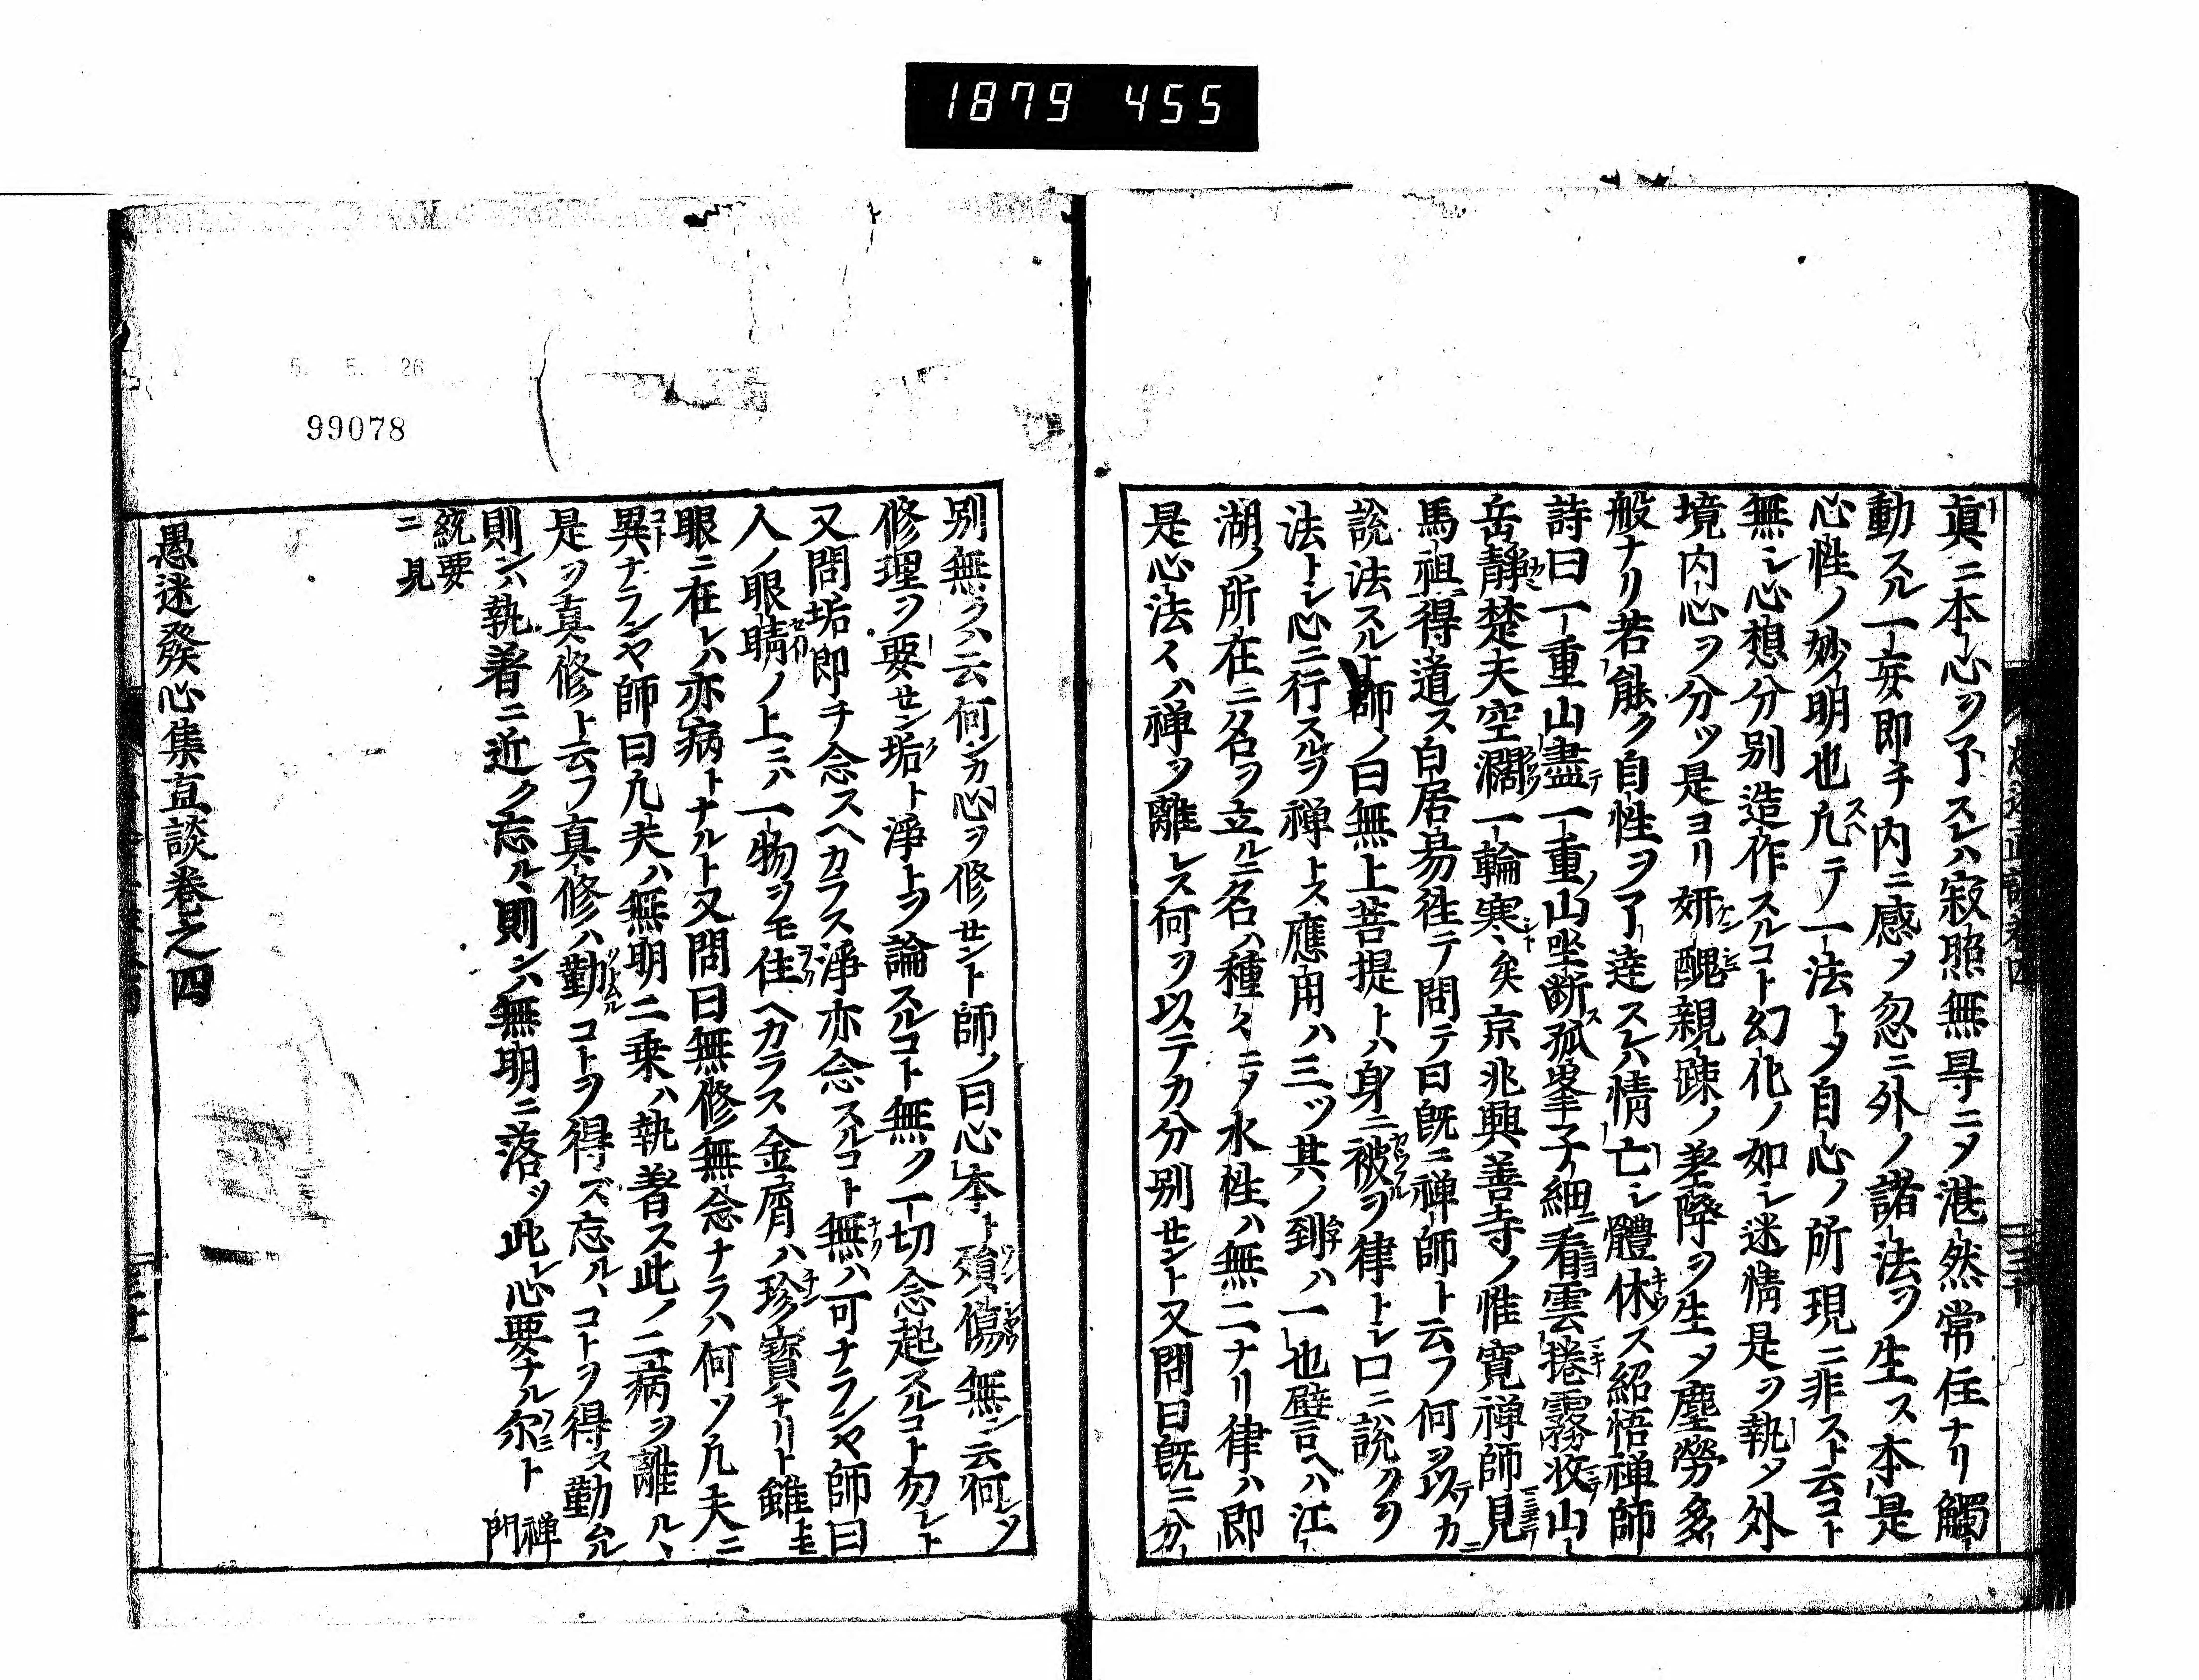 1879 455
眞ニ本心ヲ了スレハ寂照無㝵ニメ湛然常住ナリ觸
動スル一妄即チ内ニ感メ忽ニ外ノ諸法ヲ生ス本是
心性ノ妙明也凢テノ一法トメ自心ノ所現ニ非スト云コト
無シ心想分別造作スルコト幻化ノ如シ迷情是ヲ執メ外
境内心ヲ分ツ是ヨリ妍醜親疎ノ差降ヲ生メ塵勞多
般ナリ若能ク自性ヲ了達スレハ情亡シ體休ス紹悟禅師
詩曰一重山盡テ一重ノ山坐断ス孤峯子細ニ看雲捲霧收山
岳靜楚天空濶一輪寒シト矣京兆興善寺ノ惟寛禅師見
馬祖得道ス白居易徃テ問テ曰既ニ禅師ト云フ何ヲ以テカ
説法スルト師ノ曰無上菩提トハ身ニ被ヲ律トシ口ニ説クヲ
法トシ心ニ行スルヲ禅トス應用ハ三ツ其ノ到ハ一也譬ヘハ江
湖ノ所在ニ名ヲ立ルニ名ハ種々ニメ水性ハ無二ナリ律ハ即
是心法々ハ禅ヲ離レス何ヲ以テカ分別セント又問曰既ニ分
別無クハ云何ンカ心ヲ修セント師ノ曰心本ト損傷無シ云何ンソ
修理ヲ要セン垢ト淨トヲ論スルコト無ク一切念起スルコト勿レト
又問垢即チ念スヘカラス淨亦念スルコト無ハ可ナランヤ師曰
人ノ眼睛ノ上ニハ一物ヲモ住ヘカラス金屑ハ珍寳ナリト雖トモ
眼ニ在レハ亦病トナルト又問曰無修無念ナラハ何ソ凢夫ニ
異ナランヤ師曰凢夫ハ無明二乗ハ執著ス此ノ二病ヲ離ル、
是ヲ真修ト云フ真修ハ勤ルコトヲ得ズ忘ル、コトヲ得ス勤ル
則ンハ執著ニ近ク忘ル、則ンハ無明ニ落ツ此レ心要ナル尓ト 禅門
統要ニ見
愚迷發心集直談巻之四
5. 5. 26
99078